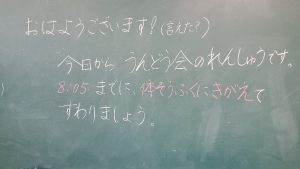 おはようございます!(言えた?)
今日から うんどう会のれんしゅうです。
8:05 までに、体そうふくにきがえて
すわりましょう。